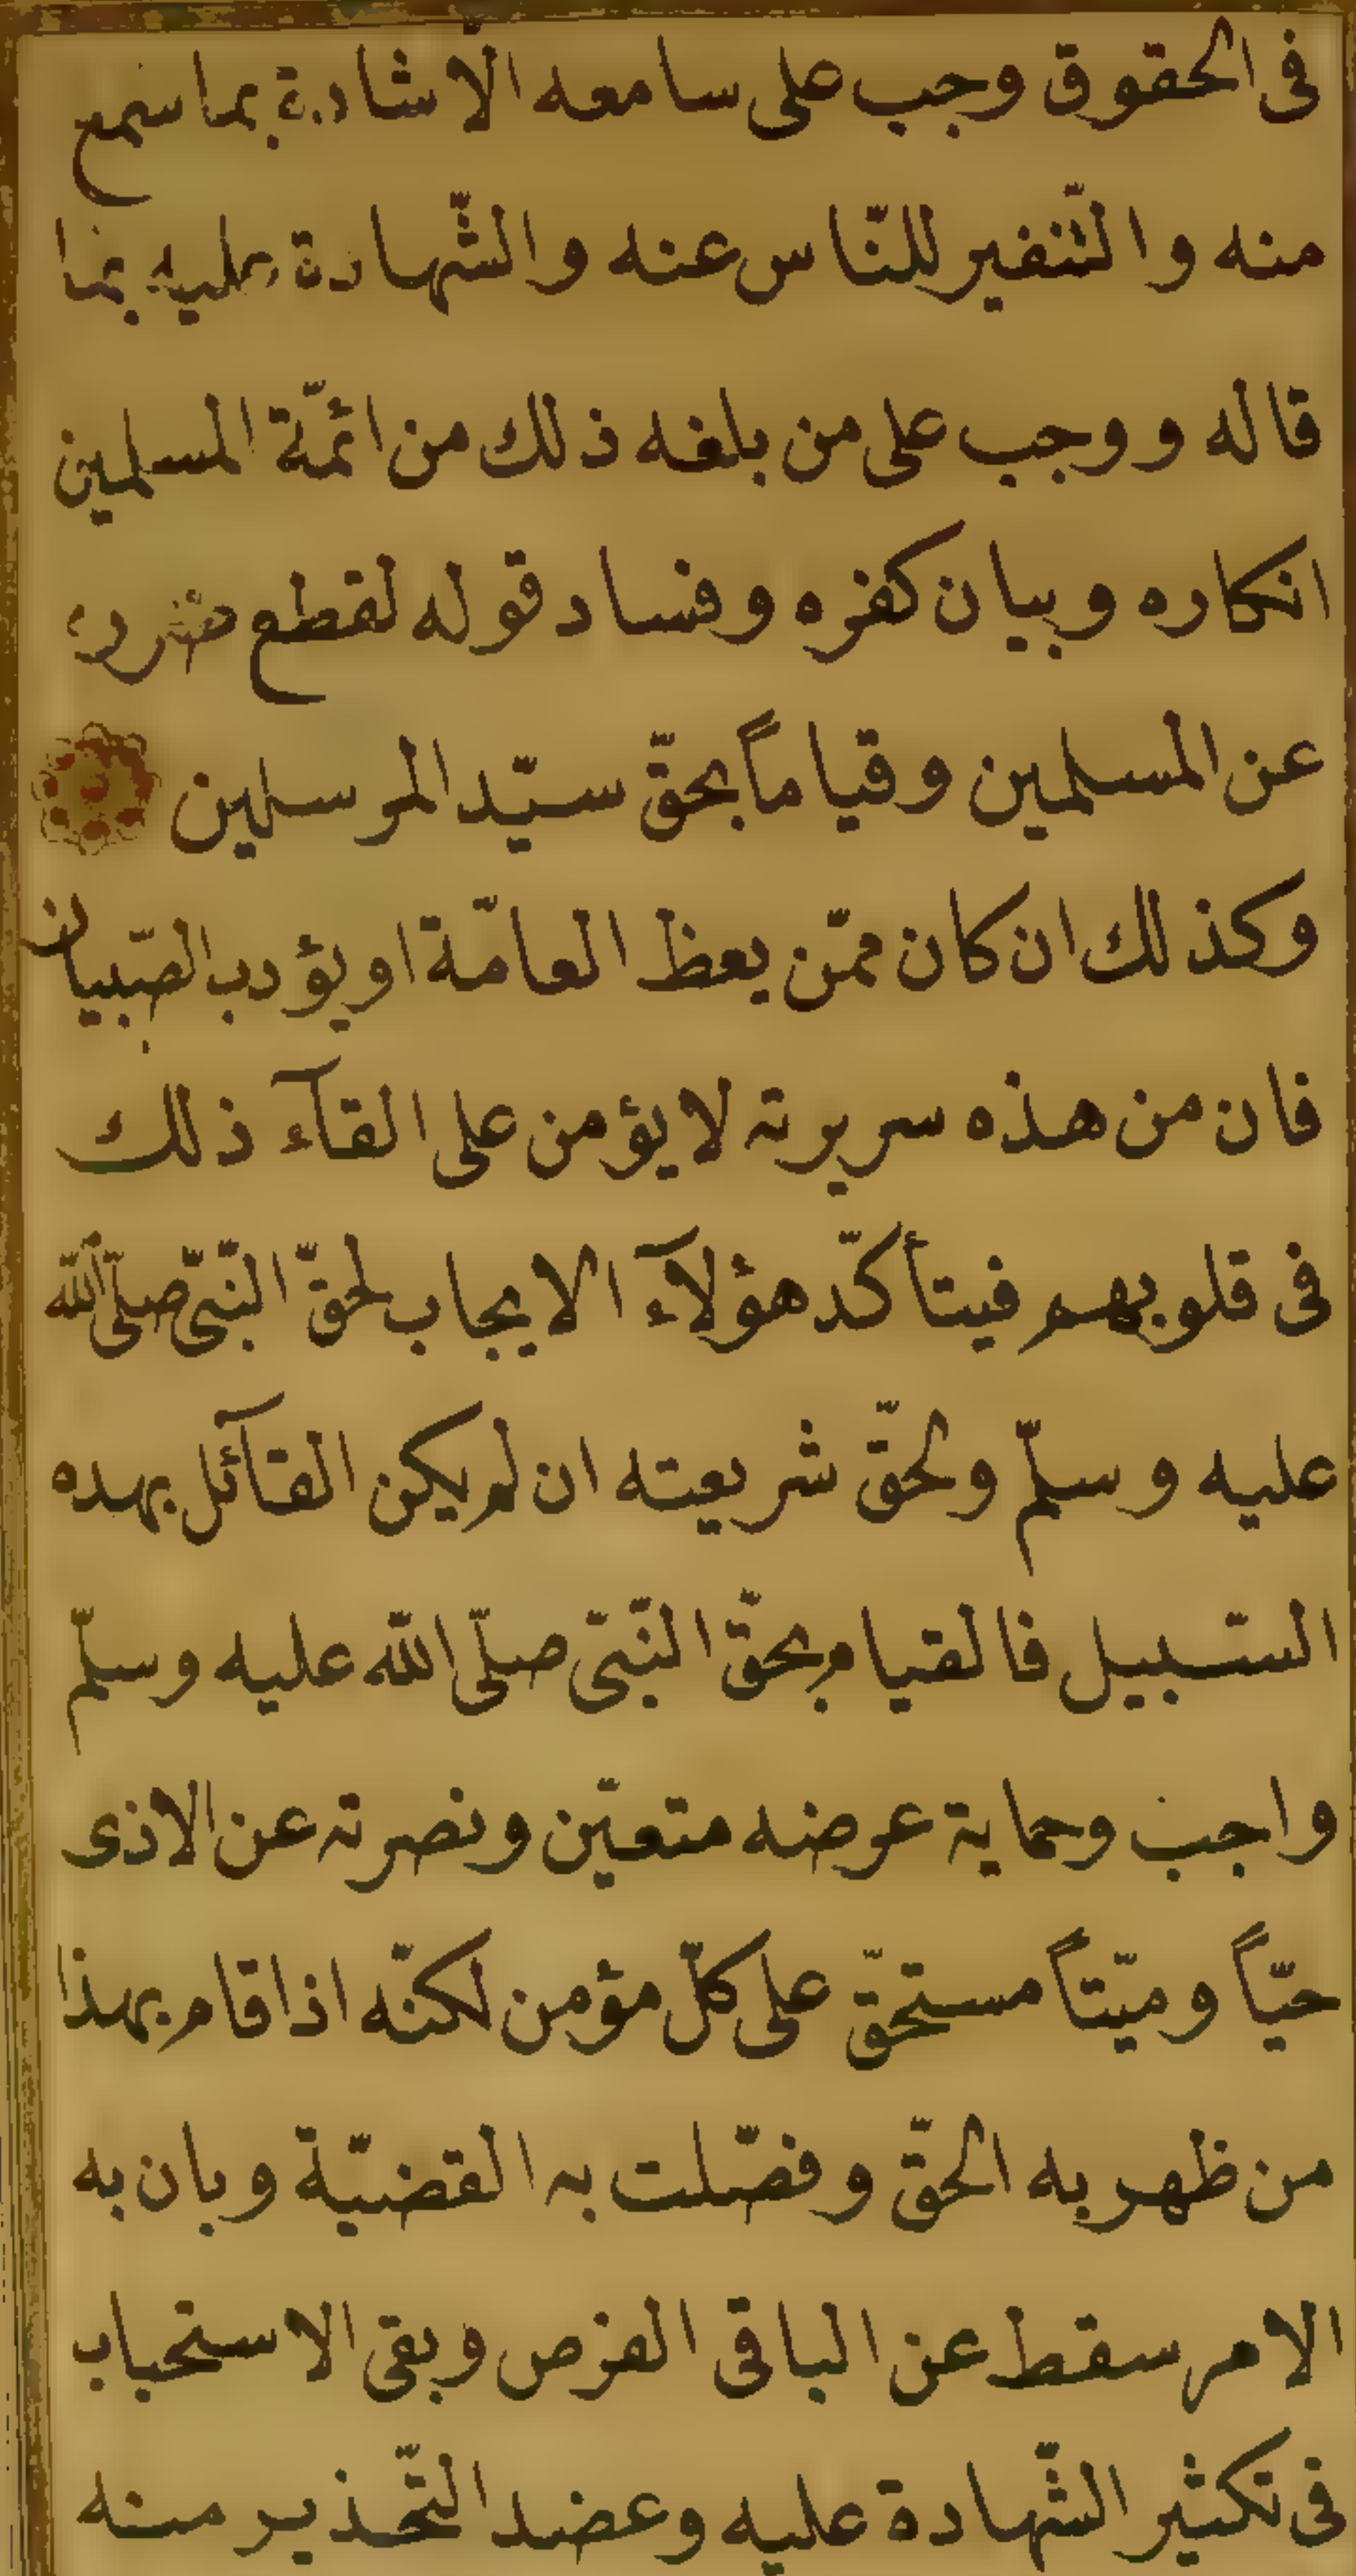 فى الحقوق وجب على سامعه الاشادة بما سمع
منه والتّنفير للنّاس عنه والشّهادة عليه بما
قاله ووجب على من بلغه ذلك من ائمّة المسلمين
انكاره وبيان كفره وفساد قوله لقطع ضرره
عن المسلمين وقياماً بحقّ سيّد المرسلين
وكذلك ان كان ممّن يعظ العامّة او يؤدب الصّبيان
فان من هذه سريرته لا يؤمن على القآء ذلك
فى قلوبهم فيتأكّد هؤلآء الايجاب لحقّ النّبىّ صلّى الله
عليه وسلّم ولحقّ شريعته ان لم يكن القآئل بهده
السّبيل فالقيام بحقّ النّبىّ صلّى الله عليه وسلّم
واجب وحماية عرضه متعيّن ونصرته عن الاذى
حيّاً وميّتاً مستحقّ على كلّ مؤمن لكنّه اذا قام بهذا
من ظهر به الحقّ وفصّلت به القضيّة وبان به
الامر سقط عن الباقى الفرض وبقى الاستحباب
فى تكثير الشّهادة عليه وعضد التّحذير منه